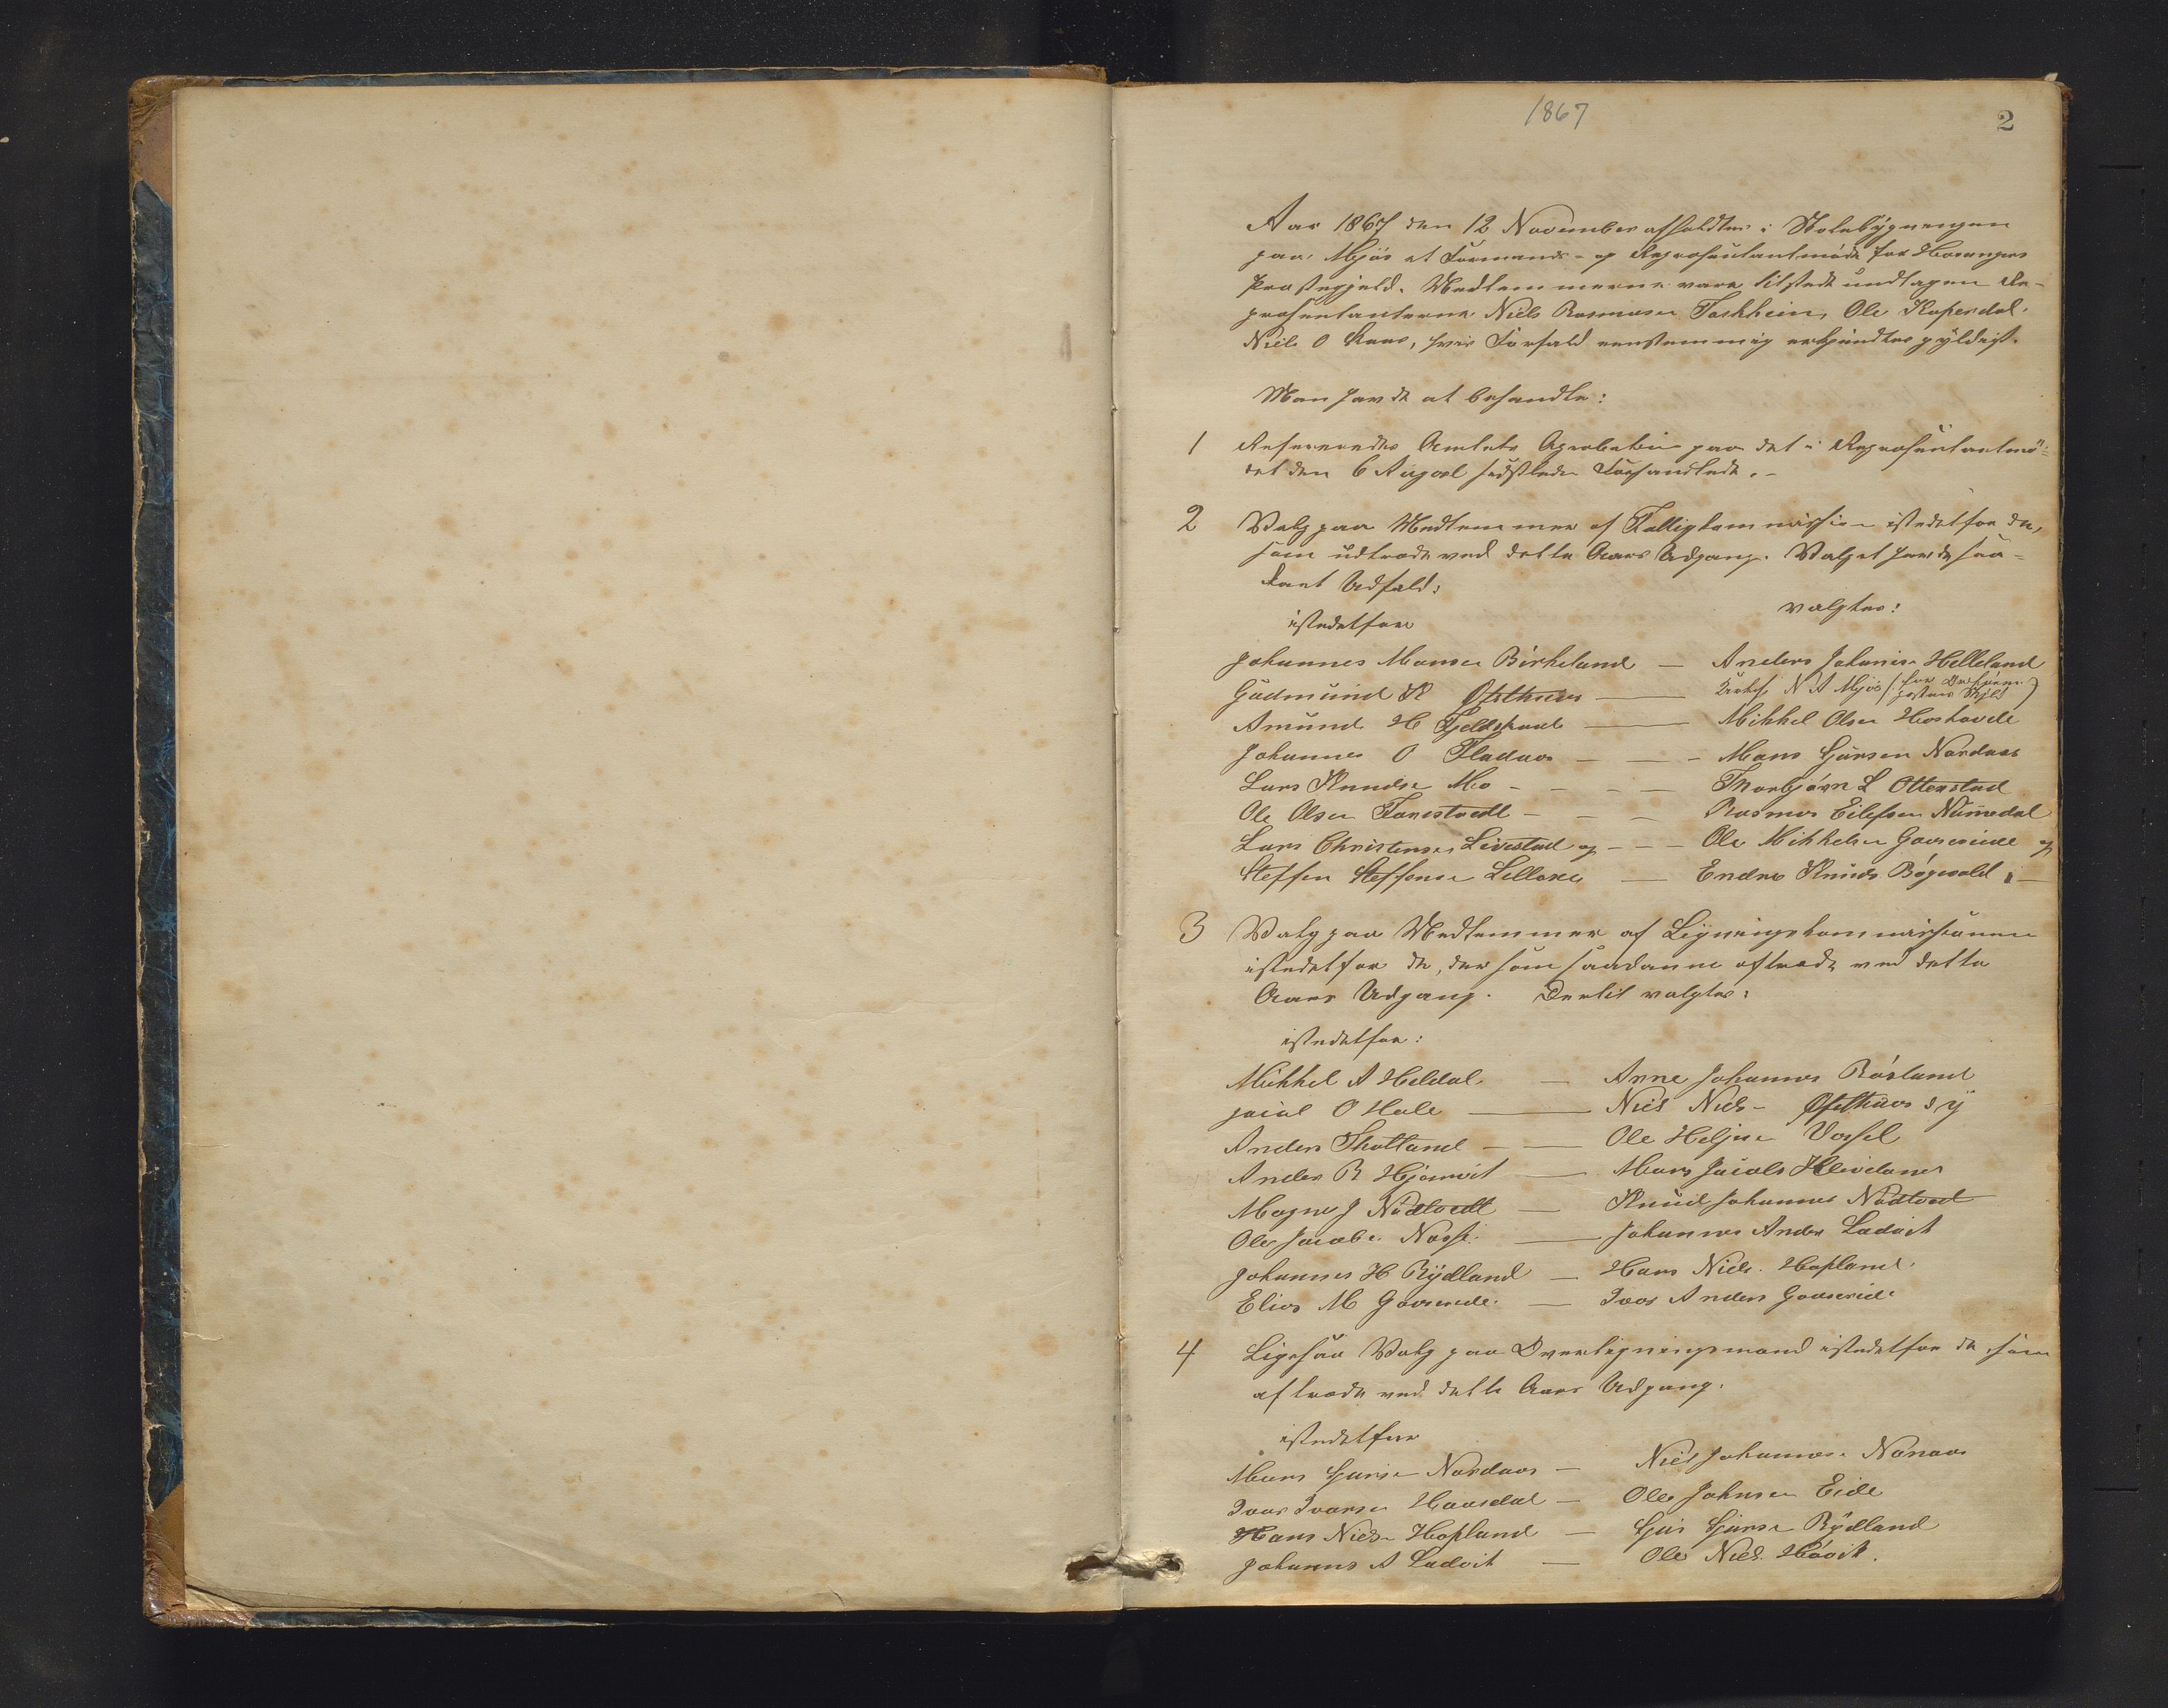 1867
2
Aar 1867 den 12 November afholdtes i Skolebÿgningen
paa Mjøs et Formands- og Repræsentantmøde for Hosangers
Præstegjeld. Medlemmerne vare tilstede undtagen Re-
præsentanterne Niels Rasmusen Toskheim, Ole Kopperdal,
Niels O Raas, hvis Forfald eenstemmig erkjendtes gÿldigt.
Man havde at behandle:
1 Refereredes Amtets Aprobation paa det i Repræsentantmø-
det den 6 August sidstleden Forhandlede. -
2 Valg paa Medlemmer af Fattigkommission istedetfor de,
som udtræde ved dette Aars Udgang. Valget havde saa-
dant Udfald:
istedetfor valgtes:
Johannes Monsen Birkeland — Anders Johannesen Helleland
Gudmund K Ofsthuus — Kirkes. N A Mjøs (for
Amund H Fjeldskaal — Mikkel Olsen Hoshovde
Johannes O Fladaas — Mons Gjursen Nordaas
Lars Knudsen Mo — Thorbjørn L Otterstad
Ole Olsen Tarestvedt — Rasmus Eilefsen Rømmedal
Lars Christensen Livestad og — Ole Mikkelsen Gaaseeide og
Steffen Steffensen Lilleaas — Endre Knuds Bøgevold. —
3 Valg paa Medlemmer af Ligningskommissionen
istedetfor de, der som saadanne aftræde ved dette
Aars Udgang. Dertil valgtes:
istedetfor:
Mikkel A Heldal — Arne Johannes Røsland
Jacob O Hole — Niels Niels Ofsthuus
Anders Thotland — Ole Helgesen Vasel
Anders R Hjelmvit — Mons Jacobs Kleiveland
Magne J Nødtvedt — Knud Johannes Nødtvedt
Ole Jacobs. Nosse — Johannes Anders Ladvik
Johannes H Rÿdland — Hans Niels. Hopland
Elias M Gaaseeide — Ivar Anders Gaaseeide
4 Ligesaa Valg paa Overligningsmænd istedetfor de, som
aftræde ved dette Aars Udgang.
istedetfor
Mons Gjursen Nordaas — Niels Johannesen Nonaas
Ivar Ivarsen Haasdal — Ole Johnsen Eide
Hans Nielsen Hopland — Gjur Gjursen Rÿdland
Johannes A Ladvik — Ole Niels. Høvik.